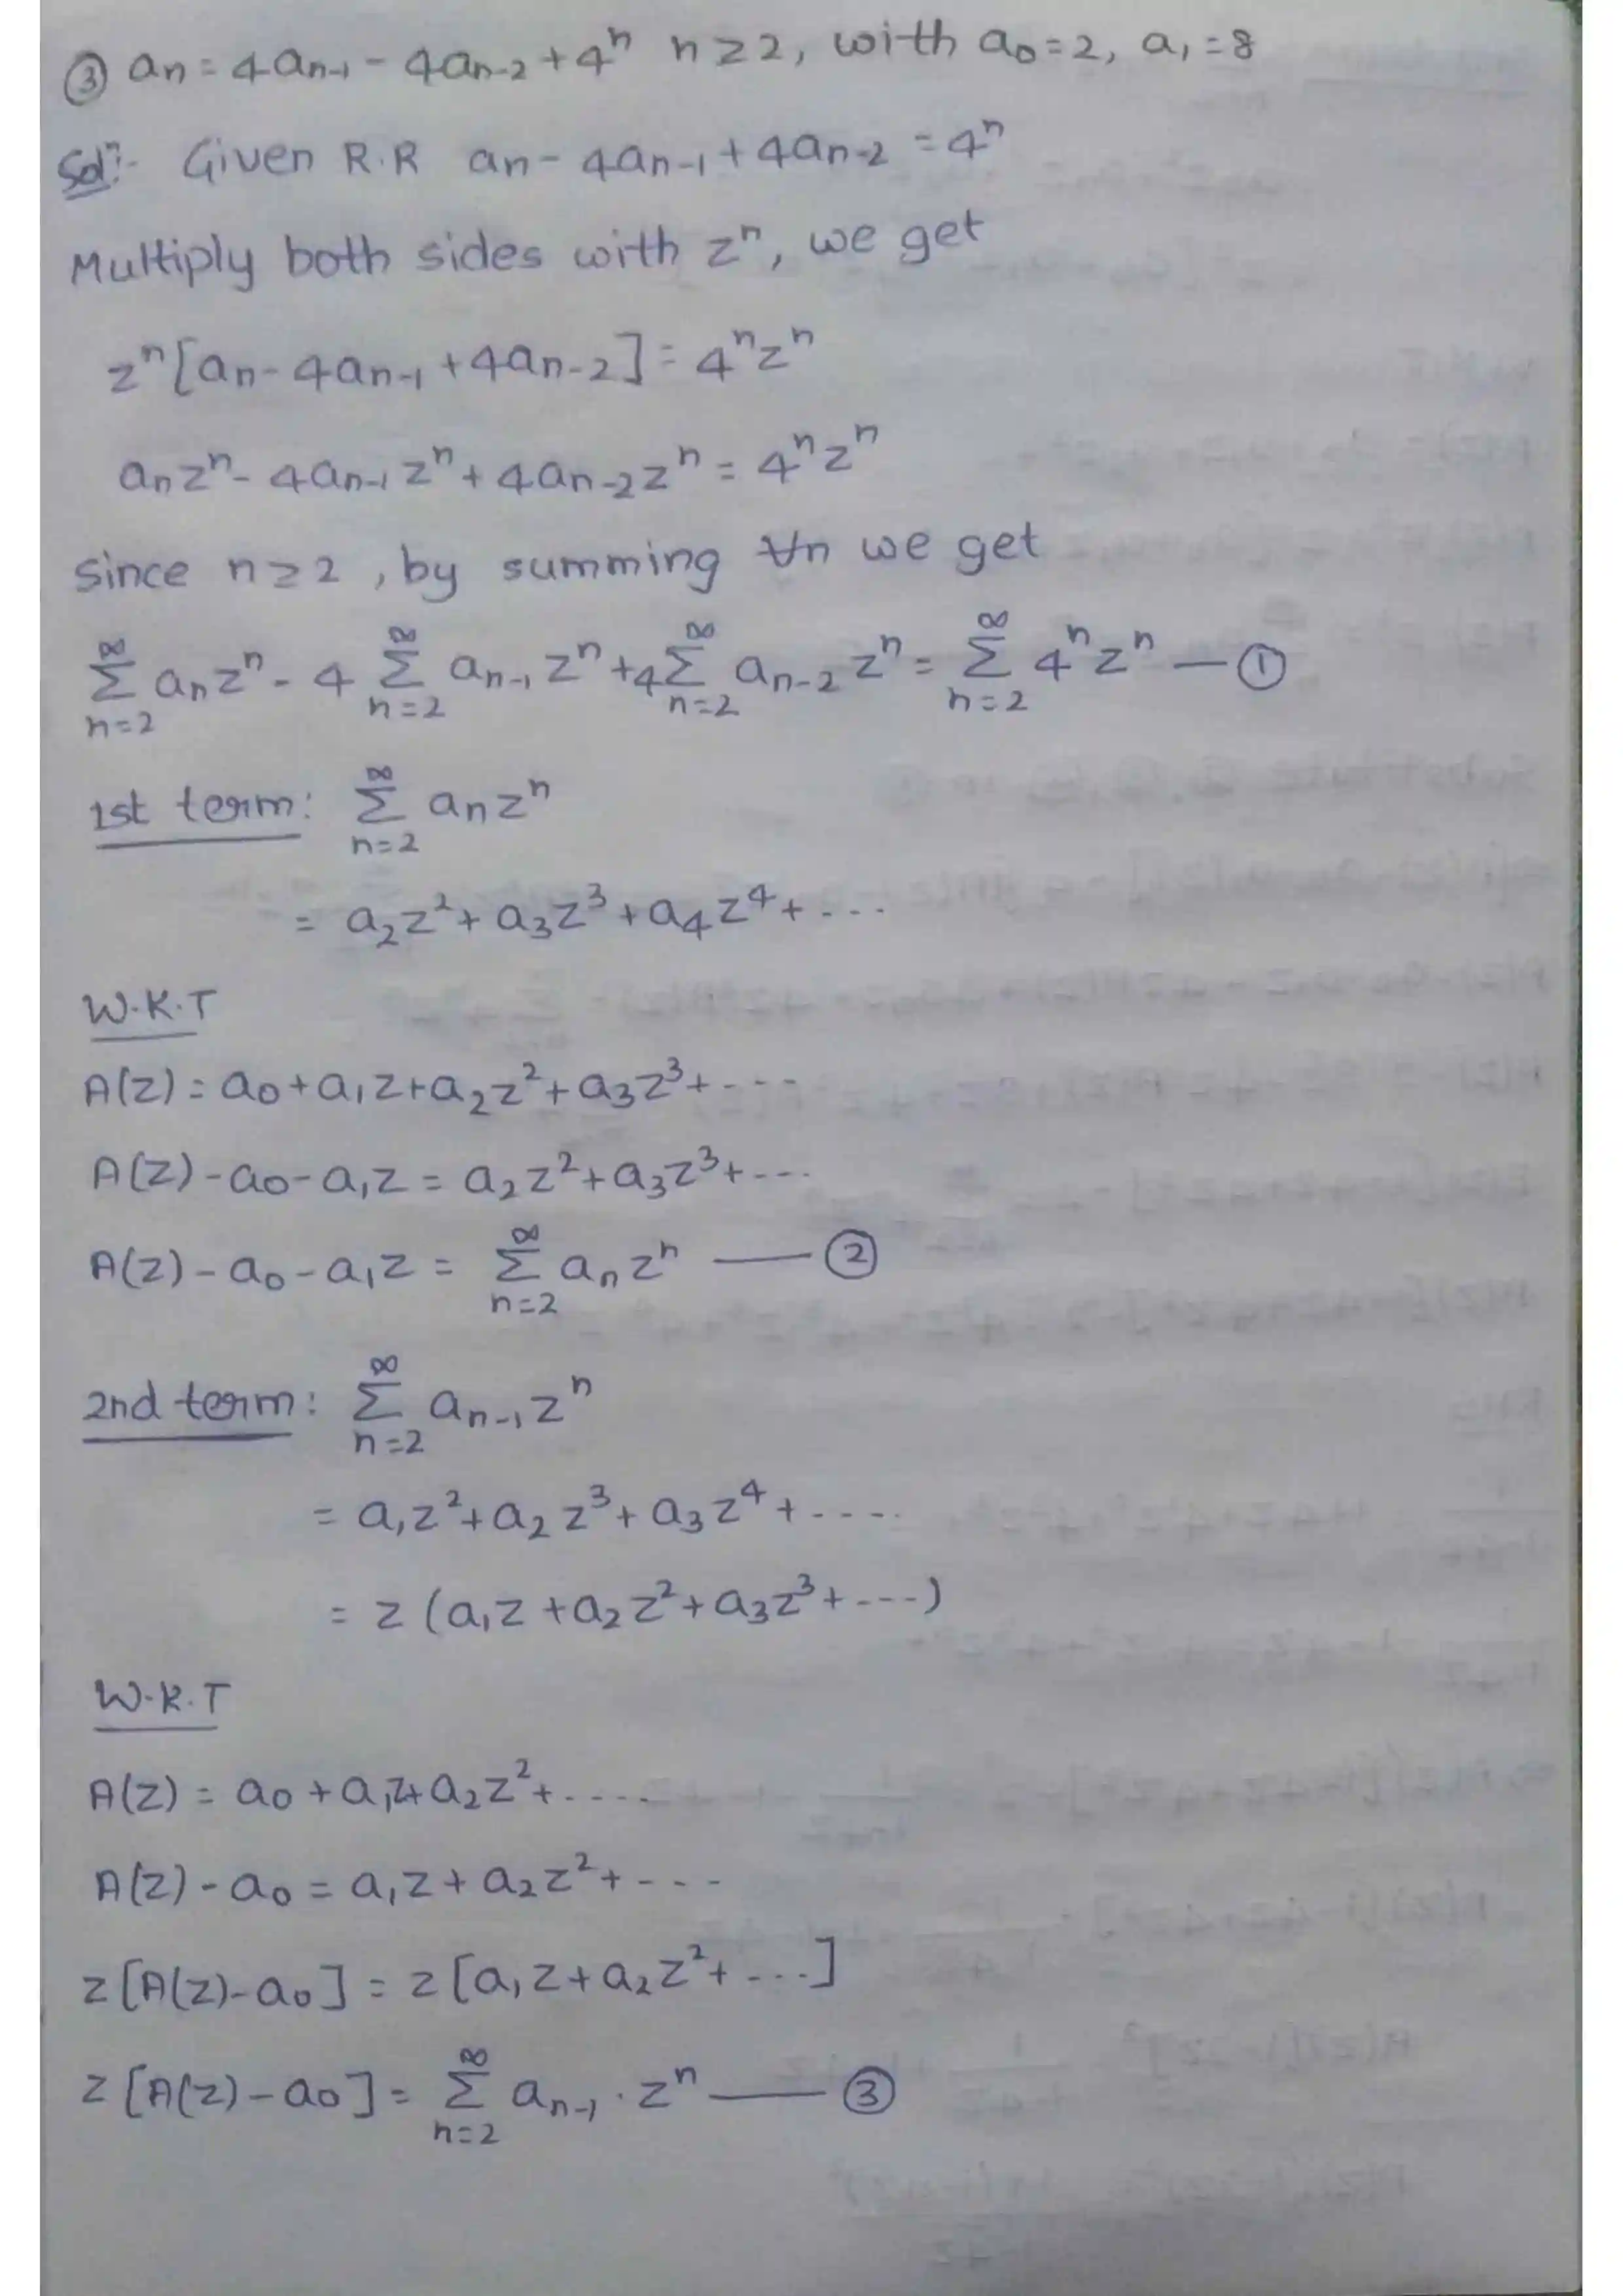 ③ an = 4an-1 - 4an-2 + 4ⁿ n ≥ 2, with a₀ = 2, a₁ = 8
Solⁿ:- Given R.R an - 4an-1 + 4an-2 = 4ⁿ
Multiply both sides with zⁿ, we get
zⁿ[an - 4an-1 + 4an-2] = 4ⁿzⁿ
anzⁿ - 4an-1 zⁿ + 4an-2 zⁿ = 4ⁿzⁿ
since n ≥ 2, by summing ∀n we get
∞Σn=2 anzⁿ - 4 ∞Σn=2 an-1 zⁿ + 4 ∞Σn=2 an-2 zⁿ = ∞Σn=2 4ⁿzⁿ — ①
1st term: ∞Σn=2 anzⁿ
= a₂z² + a₃z³ + a₄z⁴ + ...
W.K.T
A(z) = a₀ + a₁z + a₂z² + a₃z³ + ---
A(z) - a₀ - a₁z = a₂z² + a₃z³ + ---
A(z) - a₀ - a₁z = ∞Σn=2 anzⁿ — ②
2nd term: ∞Σn=2 an-1 zⁿ
= a₁z² + a₂z³ + a₃z⁴ + ....
= z (a₁z + a₂z² + a₃z³ + ---)
W.K.T
A(z) = a₀ + a₁z + a₂z² + ....
A(z) - a₀ = a₁z + a₂z² + ---
z[A(z) - a₀] = z[a₁z + a₂z² + ...]
z[A(z) - a₀] = ∞Σn=2 an-1 · zⁿ — ③